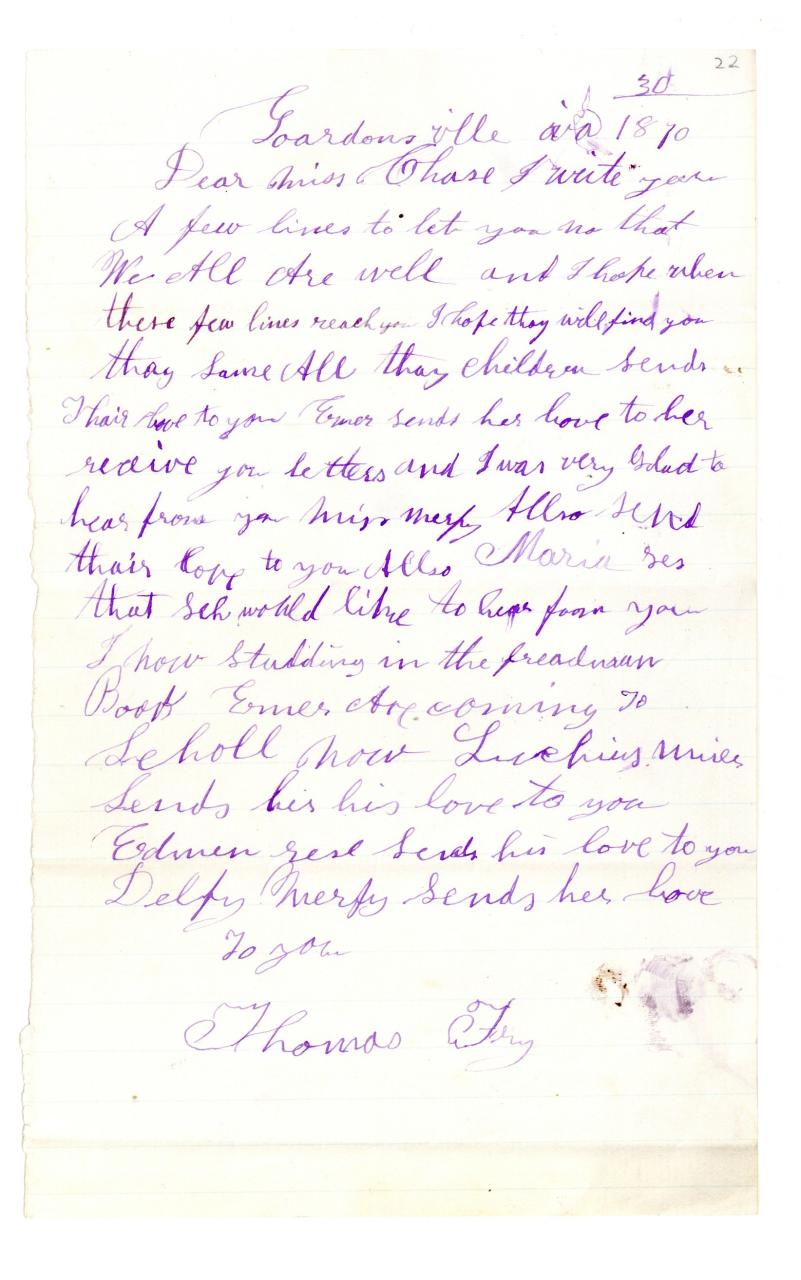 22
30
Goardonsville va 1870
Dear miss Chase I write you
A few lines to let you no that
We All Are well and I hope when
these few lines reach you I hope thay will find you
thay same All thay children sends
Thair love to you Emer sends her love to her
receive you letters and I was very Glad to
hear from you miss merfy Allso send
thair love to you Allso Maria ses
that seh wohld like to hear from you
I now studding in the freadman
Book Emer Are coming to
Scholl now Luchius miles
Sends his his love to you
Edmen sends his love to you
Delfy Merfy sends her love
To you
Thomas Fry